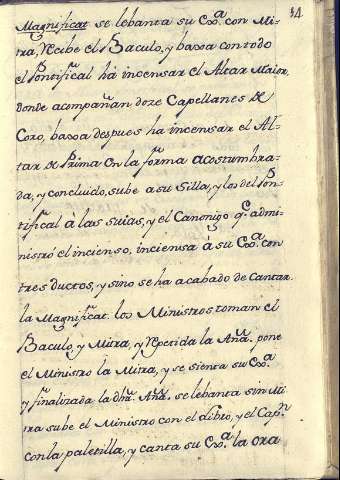 34
Magnificat se lebanta su Exª. con Mi-
tra, recibe el Baculo, y baxa con todo
el Pontifical ha incensar el Altar Maior,
donde acompañan doze Capellanes de
Coro, baxa despues ha incensar el Al-
tar de Prima en la forma acostumbra-
da, y concluido, sube a su Silla, y los del Pon-
tifical à las suias, y el Canonigo qᵉ admi-
nistró el incienso, inciensa á su Exª. con
tres ductos, y sino se ha acabado de Cantar
la Magnificat. los Ministros toman el
Baculo, y Mitra, y repetida la Anª. pone
el Ministro la Mitra, y se sienta su Exª
y finalizada la dhª Anª. se lebanta sin Mi
tra sube el Ministro con el Libro, y el Capⁿ
con la paletilla, y canta su Exª. la ora